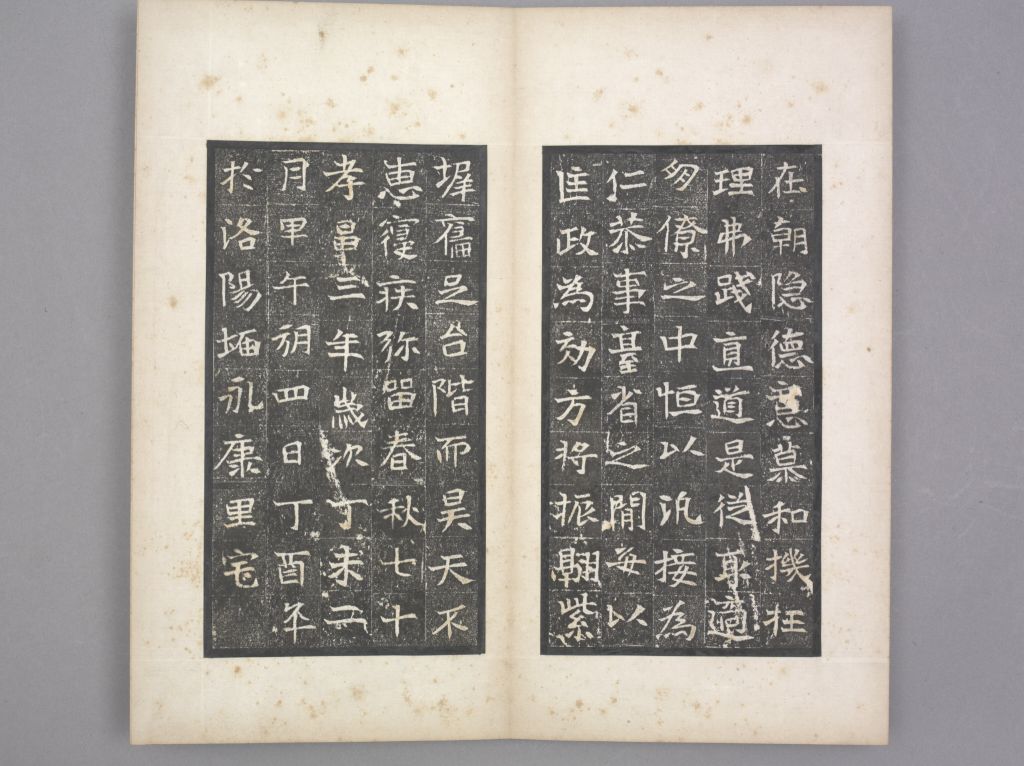 在朝隐德意慕和撲枉
理弗踐直道是従取適
僚之中恒以汎接為
仁恭事臺省之閒每以
匡政為効方将振翮紫
墀奮足台階而昊天不
惠寢疾弥留春秋七十
孝昌三年歲次丁未二
月甲午朔四日丁酉卒
於洛陽永康里宅